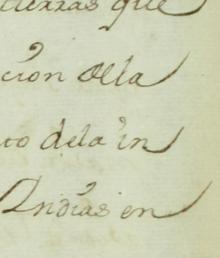 tierras que
cion della
to dela in
Indias en